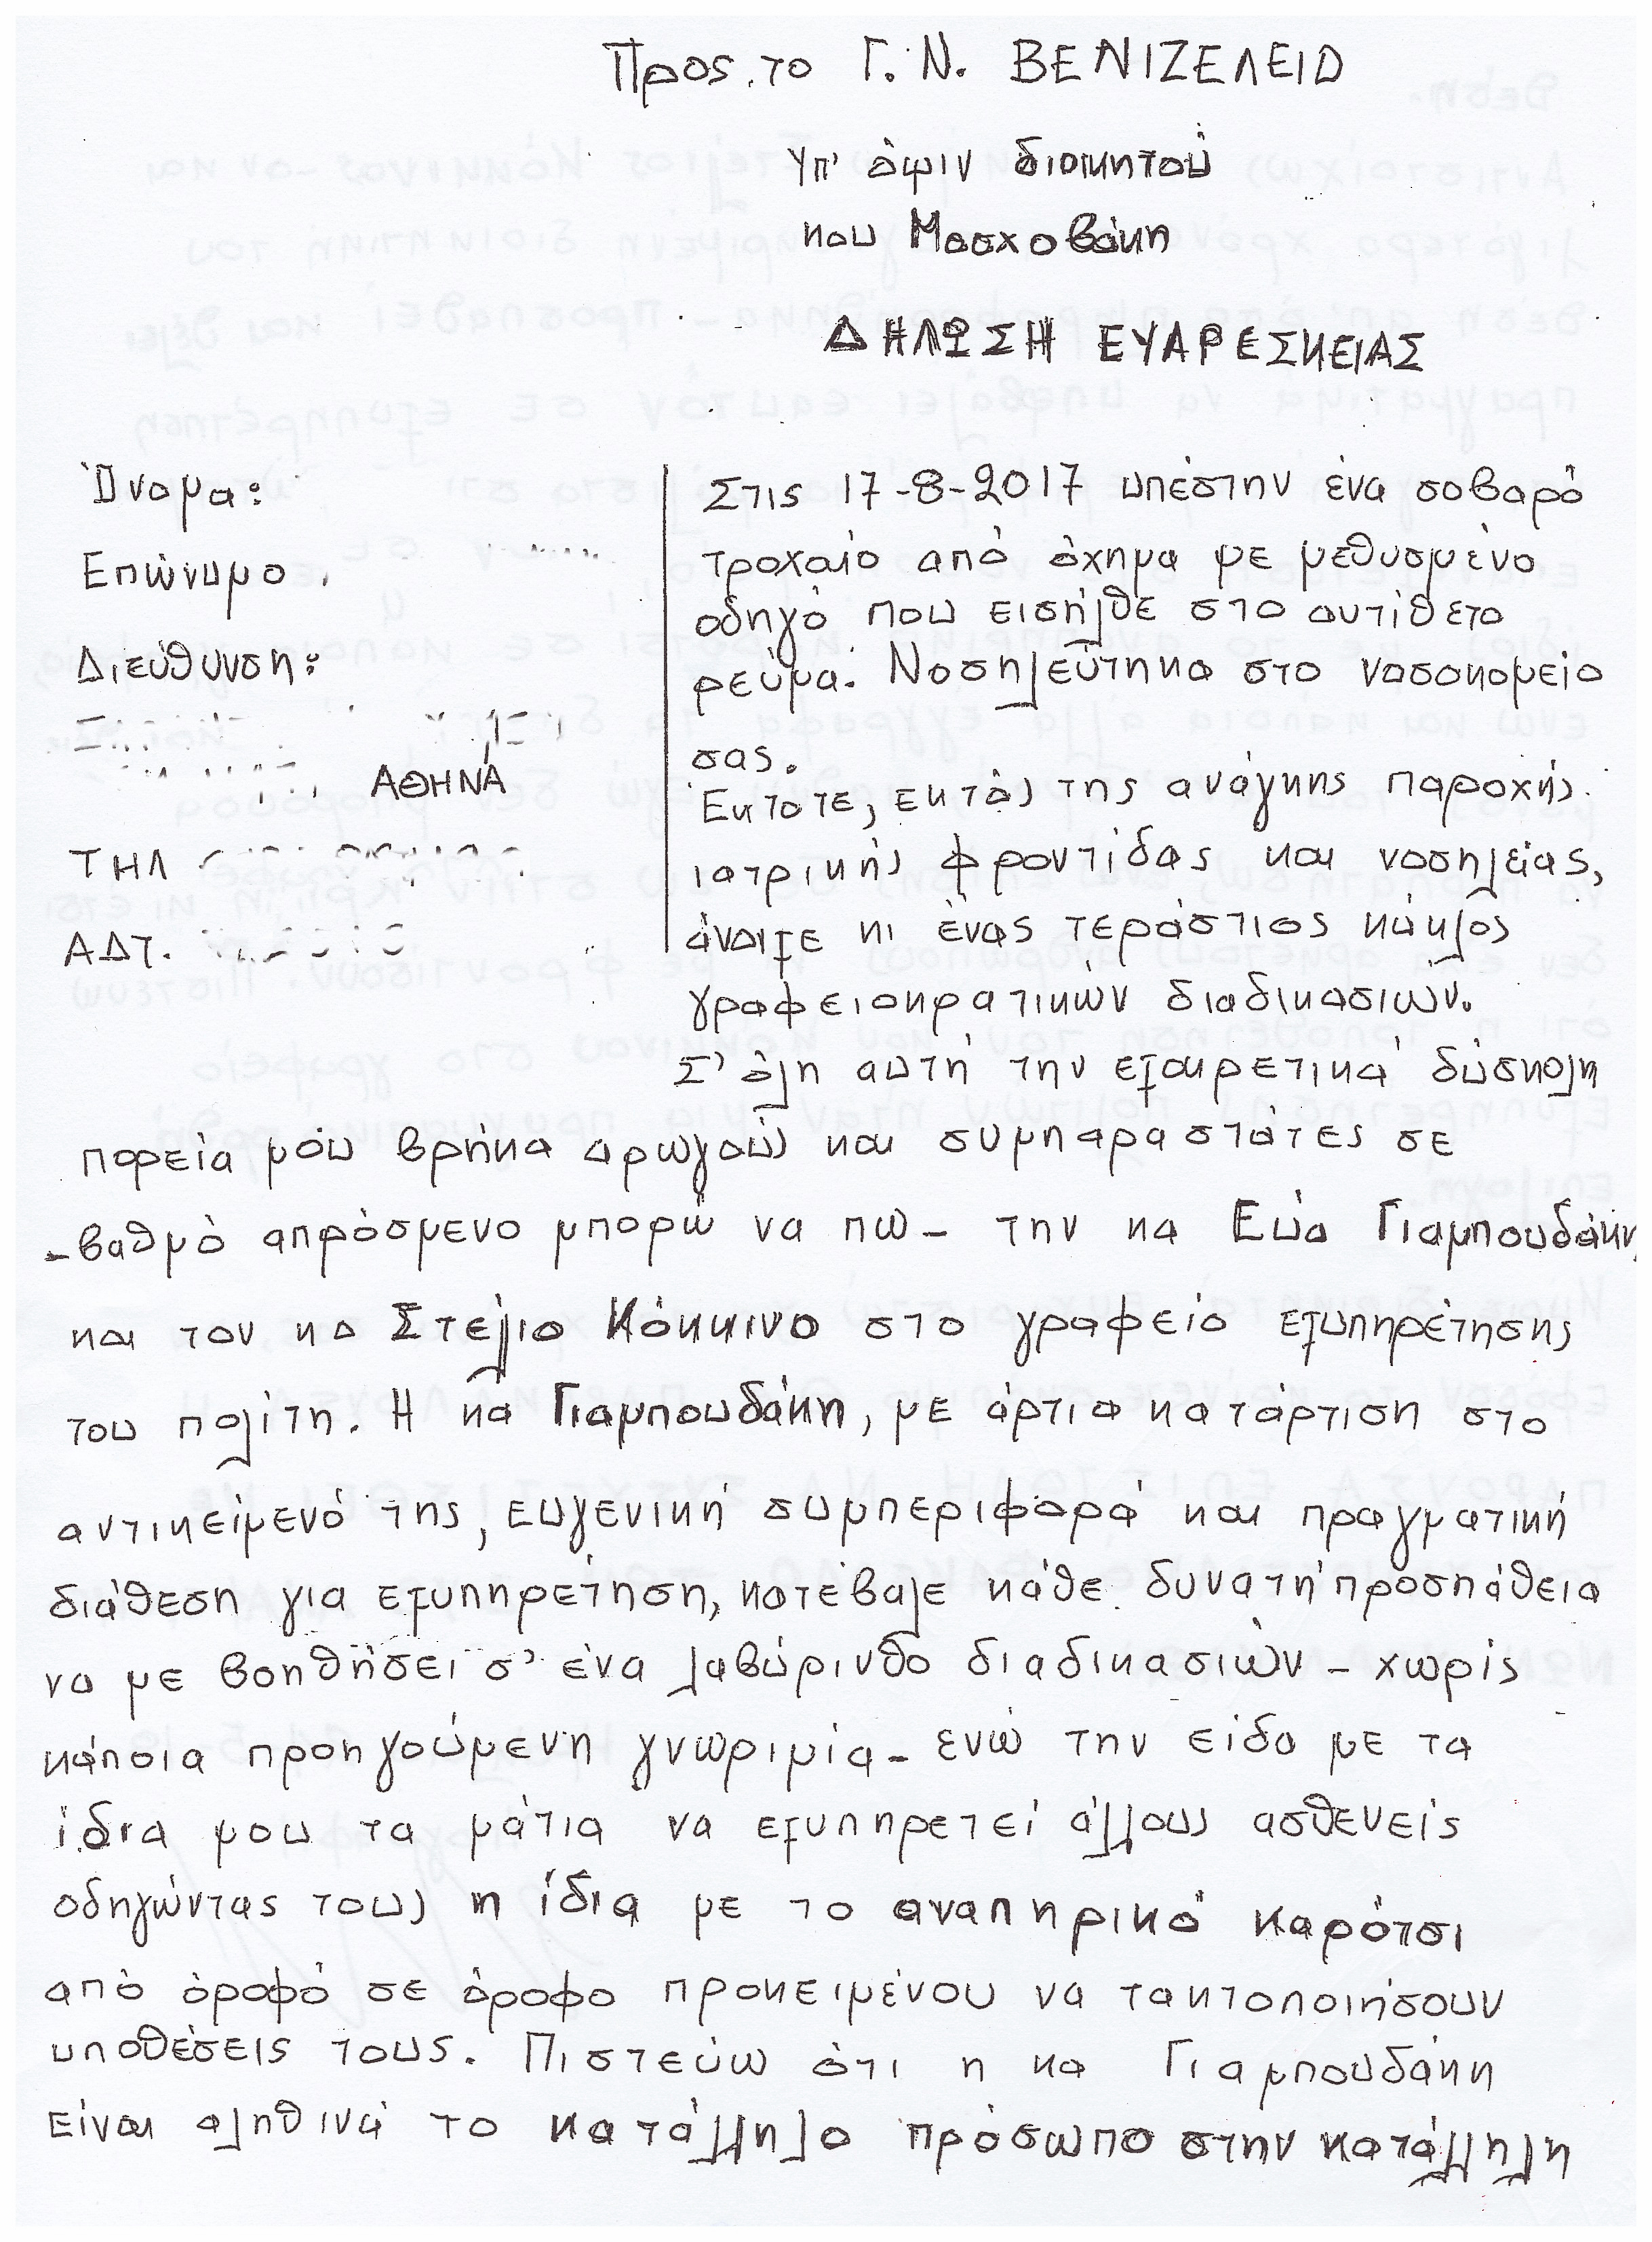 Προς το Γ.Ν. ΒΕΝΙΖΕΛΕΙΟ
Υπ' όψιν διοικητού
κου Μοσχοβάκη
ΔΗΛΩΣΗ ΕΥΑΡΕΣΚΕΙΑΣ
Όνομα:
Επώνυμο
Διεύθυνση:
ΑΘΗΝΑ
ΤΗΛ
ΑΔΤ.
Στις 17-8-2017 υπέστην ένα σοβαρό
τροχαίο από όχημα με μεθυσμένο
οδηγό που εισήλθε στο αντίθετο
ρεύμα. Νοσηλεύτηκα στο νοσοκομείο
σας.
Έκτοτε, εκτός της ανάγκης παροχής
ιατρικής φροντίδας και νοσηλείας,
άνοιξε κι ένας τεράστιος κύκλος
γραφειοκρατικών διαδικασιών.
Σ' όλη αυτή την εξαιρετικά δύσκολη
πορεία μου βρήκα αρωγούς και συμπαραστάτες σε
-βαθμό απρόσμενο μπορώ να πω- την κα Εύα Γιαμπουδάκη,
και τον κο Στέλιο Κόκκινο στο γραφείο εξυπηρέτησης
του πολίτη. Η κα Γιαμπουδάκη, με άρτια κατάρτιση στο
αντικείμενό της, ευγενική συμπεριφορά και πραγματική
διάθεση για εξυπηρέτηση, κατέβαλε κάθε δυνατή προσπάθεια
να με βοηθήσει σ' ένα λαβύρινθο διαδικασιών - χωρίς
κάποια προηγούμενη γνωριμία - ενώ την είδα με τα
ίδια μου τα μάτια να εξυπηρετεί άλλους ασθενείς
οδηγώντας τους η ίδια με το αναπηρικό καρότσι
από όροφό σε όροφο προκειμένου να τακτοποιήσουν
υποθέσεις τους. Πιστεύω ότι η κα Γιαμπουδάκη
είναι αληθινά το κατάλληλο πρόσωπο στην κατάλληλη